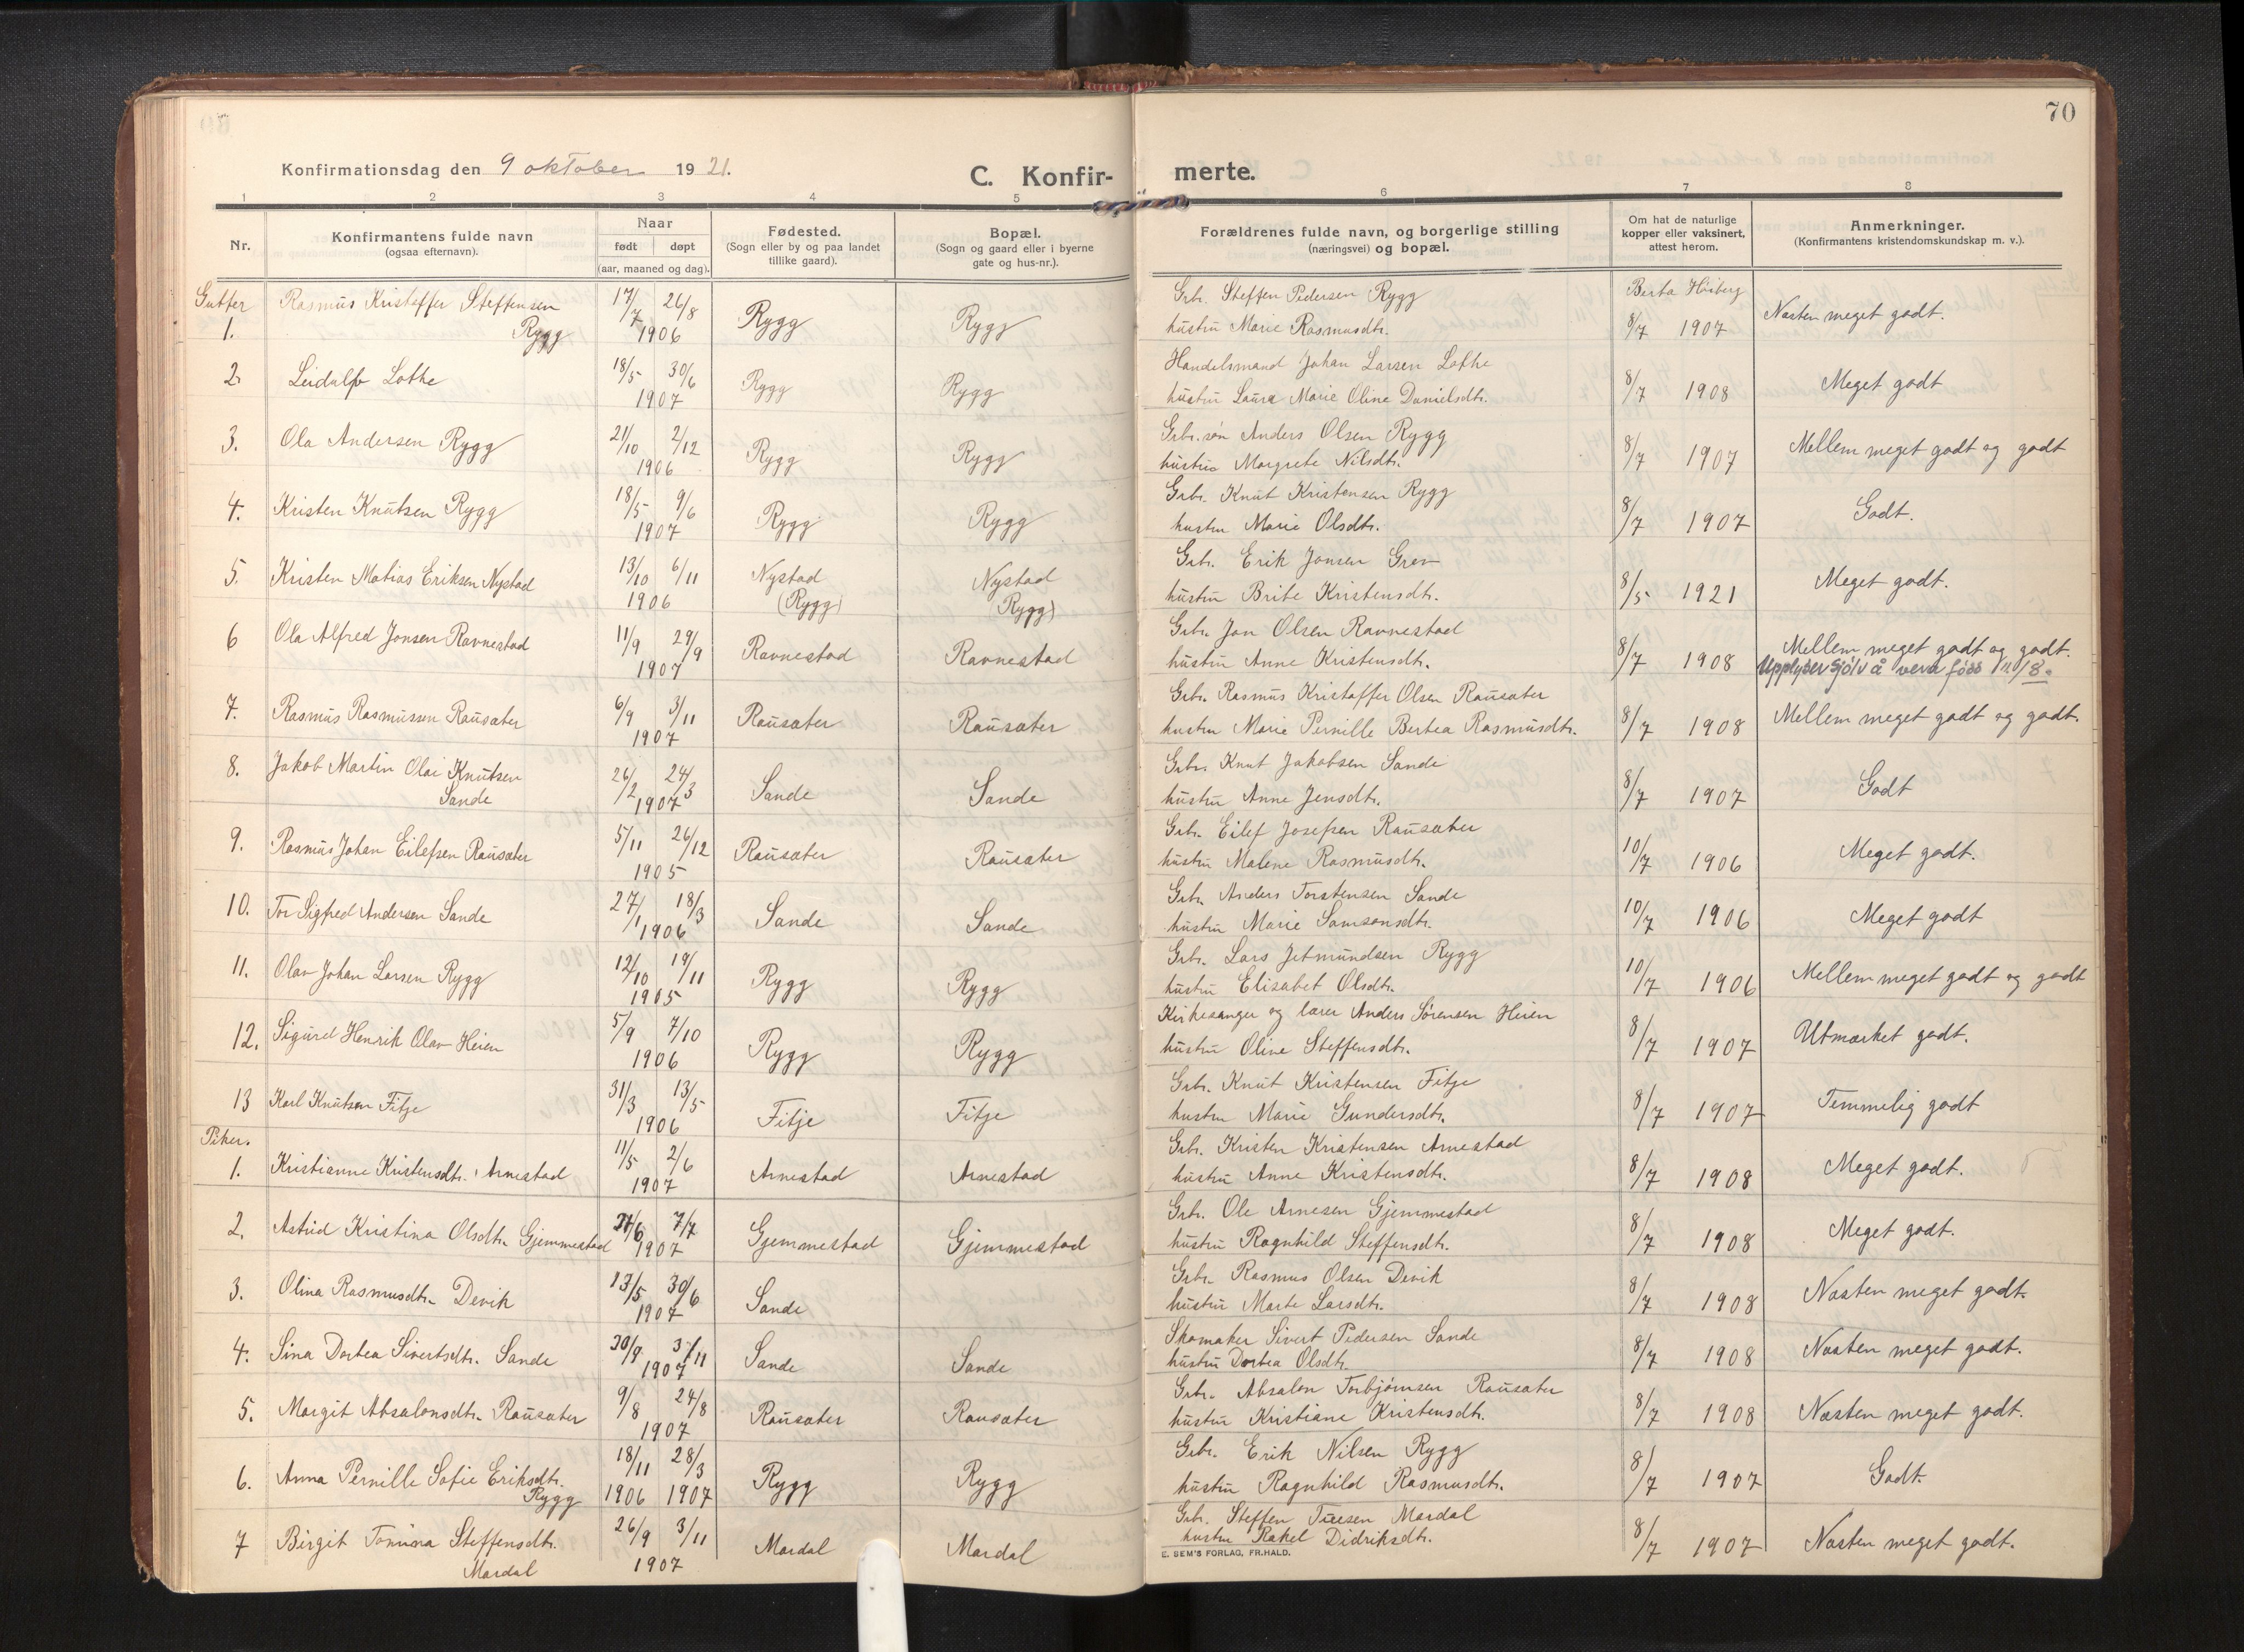 70
Konfirmationsdag den 9 oktober 1921.
C. Konfir- merte.
1 2 3 4 5 6 7 8
Nr.
Konfirmantens fulde navn
(ogsaa efternavn).
Naar
født døpt
(aar, maaned og dag).
Fødested.
(Sogn eller by og paa landet
tillike gaard).
Bopæl.
(Sogn og gaard eller i byerne
gate og hus-nr.).
Forældrenes fulde navn, og borgerlige stilling
(næringsvei) og bopæl.
Om hat de naturlige
kopper eller vaksinert,
attest herom.
Anmerkninger.
(Konfirmantens kristendomskundskap m. v.).
Gutter Rasmus Kristoffer Steffensen 17/7 26/8 Rygg Rygg Grbr. Steffen Pedersen Rygg Berta Høiberg Næsten meget godt.
1. Rygg 1906 hustru Marie Rasmusdtr. 8/7 1907
2. Leidulf Lothe 18/5 30/6 Rygg Rygg Handelsmand Johan Larsen Lothe 8/7 1908 Meget godt
1907 hustru Laura Marie Oline Danielsdtr.
3. Ola Andersen Rygg 21/10 2/12 Rygg Rygg Grbr.søn Anders Olsen Rygg 8/7 1907 Mellem meget godt og godt
1906 hustru Margrete Nilsdtr.
4. Kristen Knutsen Rygg 18/5 9/6 Rygg Rygg Grbr. Knut Kristensen Rygg 8/7 1907 Godt.
1907 hustru Marie Olsdtr.
5. Kristen Matias Eriksen Nystad 13/10 6/11 Nystad Nystad Grbr. Erik Jonsen Grov 8/5 1921 Meget godt.
1906 (Rygg) (Rygg) hustru Brite Kristensdtr.
6 Ola Alfred Jonsen Ravnestad 11/9 29/9 Ravnestad Ravnestad Grbr. Jon Olsen Ravnestad 8/7 1908 Mellem meget godt og godt.
1907 hustru Anne Kristensdtr. Upplyser sjølv å vera fødd 11/8.
7. Rasmus Rasmussen Rausæter 6/9 3/11 Rausæter Rausæter Grbr. Rasmus Kristoffer Olsen Rausæter 8/7 1908 Mellem meget godt og godt.
1907 hustru Marie Pernille Bertea Rasmusdtr.
8. Jakob Martin Olai Knutsen 26/2 24/3 Sande Sande Grbr. Knut Jakobsen Sande 8/7 1907 Godt
Sande 1907 hustru Anne Jensdtr.
9. Rasmus Johan Eilefsen Rausæter 5/11 26/12 Rausæter Rausæter Grbr. Eilef Josefsen Rausæter 10/7 1906 Meget godt.
1905 hustru Malene Rasmusdtr.
10. Tor Sigfred Andersen Sande 27/1 18/3 Sande Sande Grbr. Anders Torstensen Sande 10/7 1906 Meget godt
1906 hustru Marie Samsonsdtr.
11. Olav Johan Larsen Rygg 12/10 19/11 Rygg Rygg Grbr. Lars Jetmundsen Rygg 10/7 1906 Mellem meget godt og godt
1905 hustru Elisabet Olsdtr.
12. Sigurd Henrik Olav Heien 5/9 7/10 Rygg Rygg Kirkesanger og lærer Anders Sørensen Heien 8/7 1907 Utmærket godt.
1906 hustru Oline Steffensdtr.
13 Karl Knutsen Fitje 31/3 13/5 Fitje Fitje Grbr. Knut Kristensen Fitje 8/7 1907 Temmelig godt
1906 hustru Marie Gundersdtr.
Piker.
1. Kristianne Kristensdtr. Arnestad 11/5 2/6 Arnestad Arnestad Grbr. Kristen Kristensen Arnestad 8/7 1908 Meget godt.
1907 hustru Anne Kristensdtr.
2. Astrid Kristina Olsdtr. Gjemmestad 7/7 Gjemmestad Gjemmestad Grbr. Ole Arnesen Gjemmestad 8/7 1908 Meget godt.
1907 hustru Ragnhild Steffensdtr.
3. Olina Rasmusdtr. Devik 13/5 30/6 Sande Grbr. Rasmus Olsen Devik 8/7 1908 Næsten meget godt.
1907 hustru Marte Larsdtr.
4. Sina Dortea Sivertsdtr. Sande 30/9 3/11 Sande Sande Skomaker Sivert Pedersen Sande 8/7 1908 Næsten meget godt.
1907 hustru Dortea Olsdtr.
5. Margit Absalonsdtr. Rausæter 9/8 24/8 Rausæter Rausæter Grbr. Absalon Torbjørnsen Rausæter 8/7 1908 Næsten meget godt.
1907 hustru Kristiane Kristensdtr.
6. Anna Pernille Sofie Eriksdtr. 18/11 28/3 Rygg Rygg Grbr. Erik Nilsen Rygg 8/7 1907 Godt.
Rygg 1906 1907 hustru Ragnhild Rasmusdtr.
7 Birgit Tomina Steffensdtr. 26/9 3/11 Mardal Mardal Grbr. Steffen Mardal 8/7 1907 Næsten meget godt.
Mardal 1907 hustru Rakel Didriksdtr.
E. SEM'S FORLAG, FR.HALD.